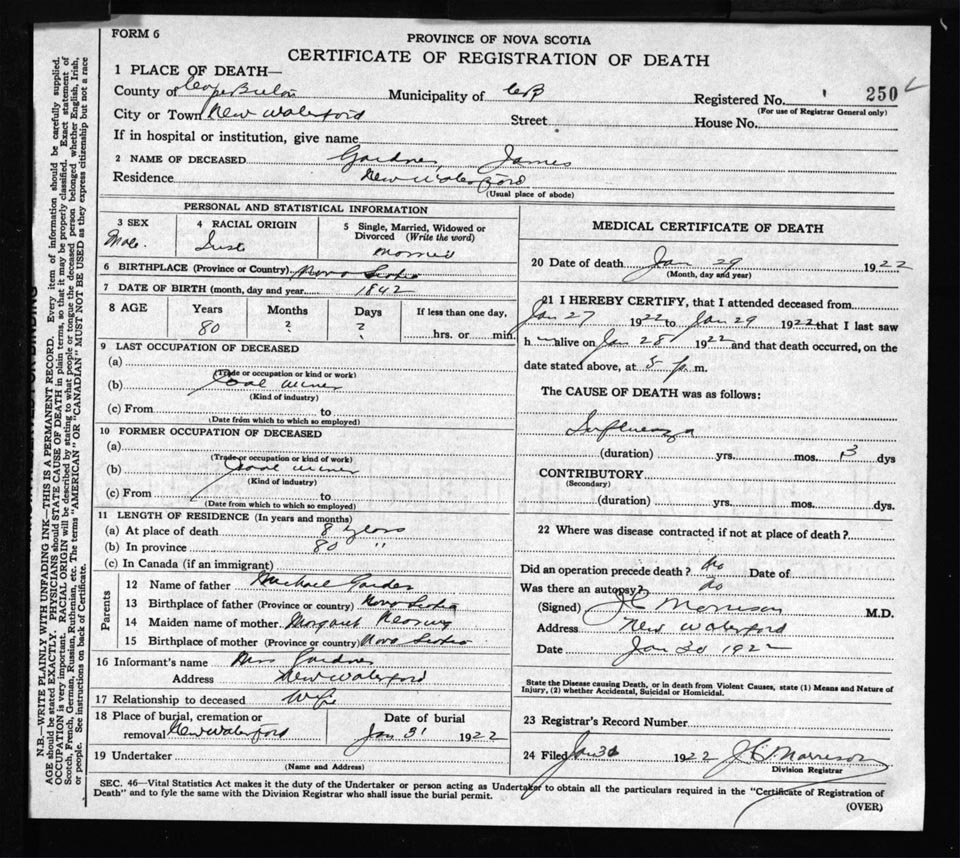 FORM 6
PROVINCE OF NOVA SCOTIA
CERTIFICATE OF REGISTRATION OF DEATH
1 PLACE OF DEATH—
County of Cape Breton Municipality of CB Registered No. 250
(For use of Registrar General only)
City or Town New Waterford Street House No.
If in hospital or institution, give name
2 NAME OF DECEASED Gardner James
Residence New Waterford
(Usual place of abode)
PERSONAL AND STATISTICAL INFORMATION
3 SEX Male
4 RACIAL ORIGIN Irish
5 Single, Married, Widowed or Divorced (Write the word) Married
6 BIRTHPLACE (Province or Country) Nova Scotia
7 DATE OF BIRTH (month, day and year) 1842
8 AGE Years Months Days If less than one day,
80 ? ? hrs. or min.
9 LAST OCCUPATION OF DECEASED
(a)
(Trade or occupation or kind or work)
(b) Coal miner
(Kind of industry)
(c) From to
(Date from which to which so employed)
10 FORMER OCCUPATION OF DECEASED
(a)
(Trade or occupation or kind of work)
(b) Coal miner
(Kind of industry)
(c) From to
(Date from which to which so employed)
11 LENGTH OF RESIDENCE (In years and months)
(a) At place of death 8 years
(b) In province 80 "
(c) In Canada (if an immigrant)
Parents
12 Name of father Michael Gardner
13 Birthplace of father (Province or country) Nova Scotia
14 Maiden name of mother Margaret
15 Birthplace of mother (Province or country) Nova Scotia
16 Informant's name Mrs Gardner
Address New Waterford
17 Relationship to deceased Wife
18 Place of burial, cremation or removal New Waterford
Date of burial Jan 31 1922
19 Undertaker
(Name and Address)
MEDICAL CERTIFICATE OF DEATH
20 Date of death Jan 29 1922
(Month, day and year)
21 I HEREBY CERTIFY, that I attended deceased from
Jan 27 1922 to Jan 29 1922 that I last saw
h im alive on Jan 28 1922 and that death occurred, on the
date stated above, at 5 p m.
The CAUSE OF DEATH was as follows:
Influenza
(duration) yrs. mos. 3 dys
CONTRIBUTORY
(Secondary)
(duration) yrs. mos. dys.
22 Where was disease contracted if not at place of death?
Did an operation precede death? No Date of
Was there an autopsy? No
(Signed) J C Morrison M.D.
Address New Waterford
Date Jan 30 1922
State the Disease causing Death, or in death from Violent Causes, state (1) Means and Nature of
Injury, (2) whether Accidental, Suicidal or Homicidal.
23 Registrar's Record Number
24 Filed Jan 31 1922 J C Morrison
Division Registrar
SEC. 46—Vital Statistics Act makes it the duty of the Undertaker or person acting as Undertaker to obtain all the particulars required in the "Certificate of Registration of
Death" and to fyle the same with the Division Registrar who shall issue the burial permit.
(OVER)
N.B.—WRITE PLAINLY WITH UNFADING INK—THIS IS A PERMANENT RECORD. Every item of information should be carefully supplied.
AGE should be stated EXACTLY. PHYSICIANS should STATE CAUSE OF DEATH in plain terms, so that it may be properly classified. Exact statement of
OCCUPATION is very important. RACIAL ORIGIN will be described by stating to what people or tongue the deceased person belonged whether English, Irish,
Scotch, French, German, Russian, Ruthenian, etc. The terms "AMERICAN" OR "CANADIAN" MUST NOT BE USED as they express citizenship but not a race
or people. See instructions on back of Certificate.